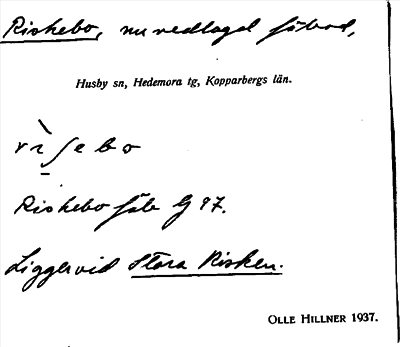 Riskebo, nu nedlagd fäbod,
Husby sn, Hedemora tg, Kopparbergs län.
rìʃebo
Riskebo fäb G 97.
Ligger vid Stora Risken.
OLLE HILLNER 1937.